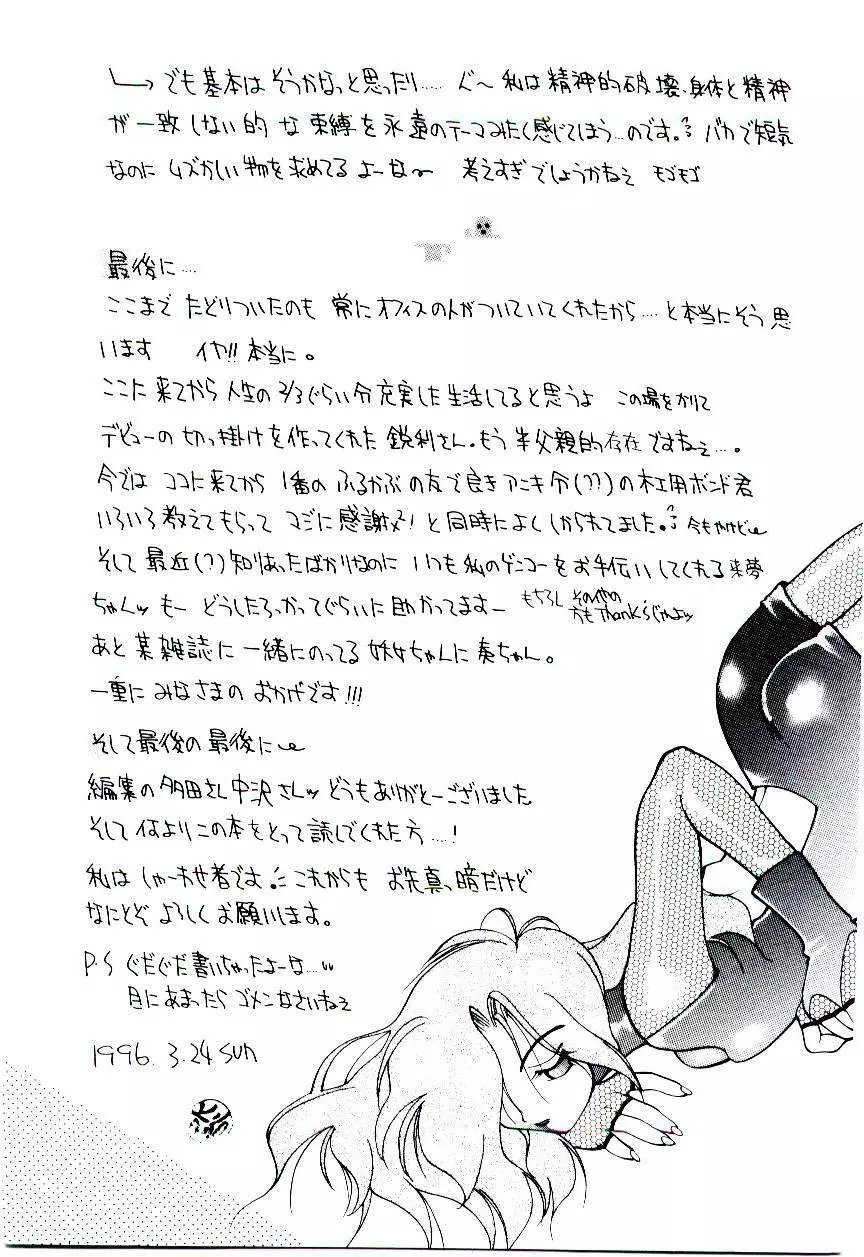 でも基本はそうかなっと思ったり…… ぐ〜 私は精神的破壊、身体と精神
が一致しない的な束縛を永遠のテーマみたく感じてしまう…のです。バカで短気
なのにムズかしい物を求めてるよーな〜 考えすぎでしょうかねえ モゴモゴ
最後に…
ここまでたどりついたのも 常にオフィスの人がついていてくれたから…と本当にそう思
います イヤ!! 本当に。
ここに来てから人生の2/3ぐらい分充実した生活してると思うよ この場をかりて
デビューの切っ掛けを作ってくれた鋭利さん・もう半父親的存在ですねぇ…。
今では ココに来てから 1番の ふるかぶの友で良きアニキ分(??)の木工用ボンド君
いろいろ教えてもらって マジに感謝〆! と同時によくしかられてました。今もやけど〜
そして最近(?)知りあったばかりなのに いつも私のゲンコーをお手伝いしてくれる来夢
ちゃんッ もー どうしたろかってぐらいに助かってますー もちろん そのへやの
方もThank'sじゃよッ
あと某雑誌に一緒にのってる 妖女ちゃんに奏ちゃん。
一重に みなさまの おかげです!!!
そして最後の最後に〜
編集の多田さん中沢さんッ どうもありがとーございました
そして何よりこの本をとって読んでくれた方…!
私はしゃーわせ者です。これからも お先真っ暗だけど
なにとぞ よろしくお願いします。
P.S ぐだぐだ書いちゃったよーな…
目にあまったら ゴメンなさいねぇ
1996. 3.24 SUN